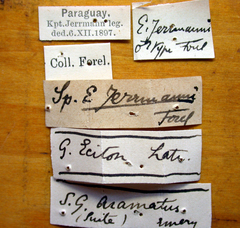 Paraguay.
Kpt. Jerrmann leg.
ded. 6. XII. 1897.
E. Jerrmanni
♂ Type Forel
Coll. Forel.
Sp. E Jerrmanni
Forel
G. Eciton Latr.
S. G Acamatus
(Suite) Emery